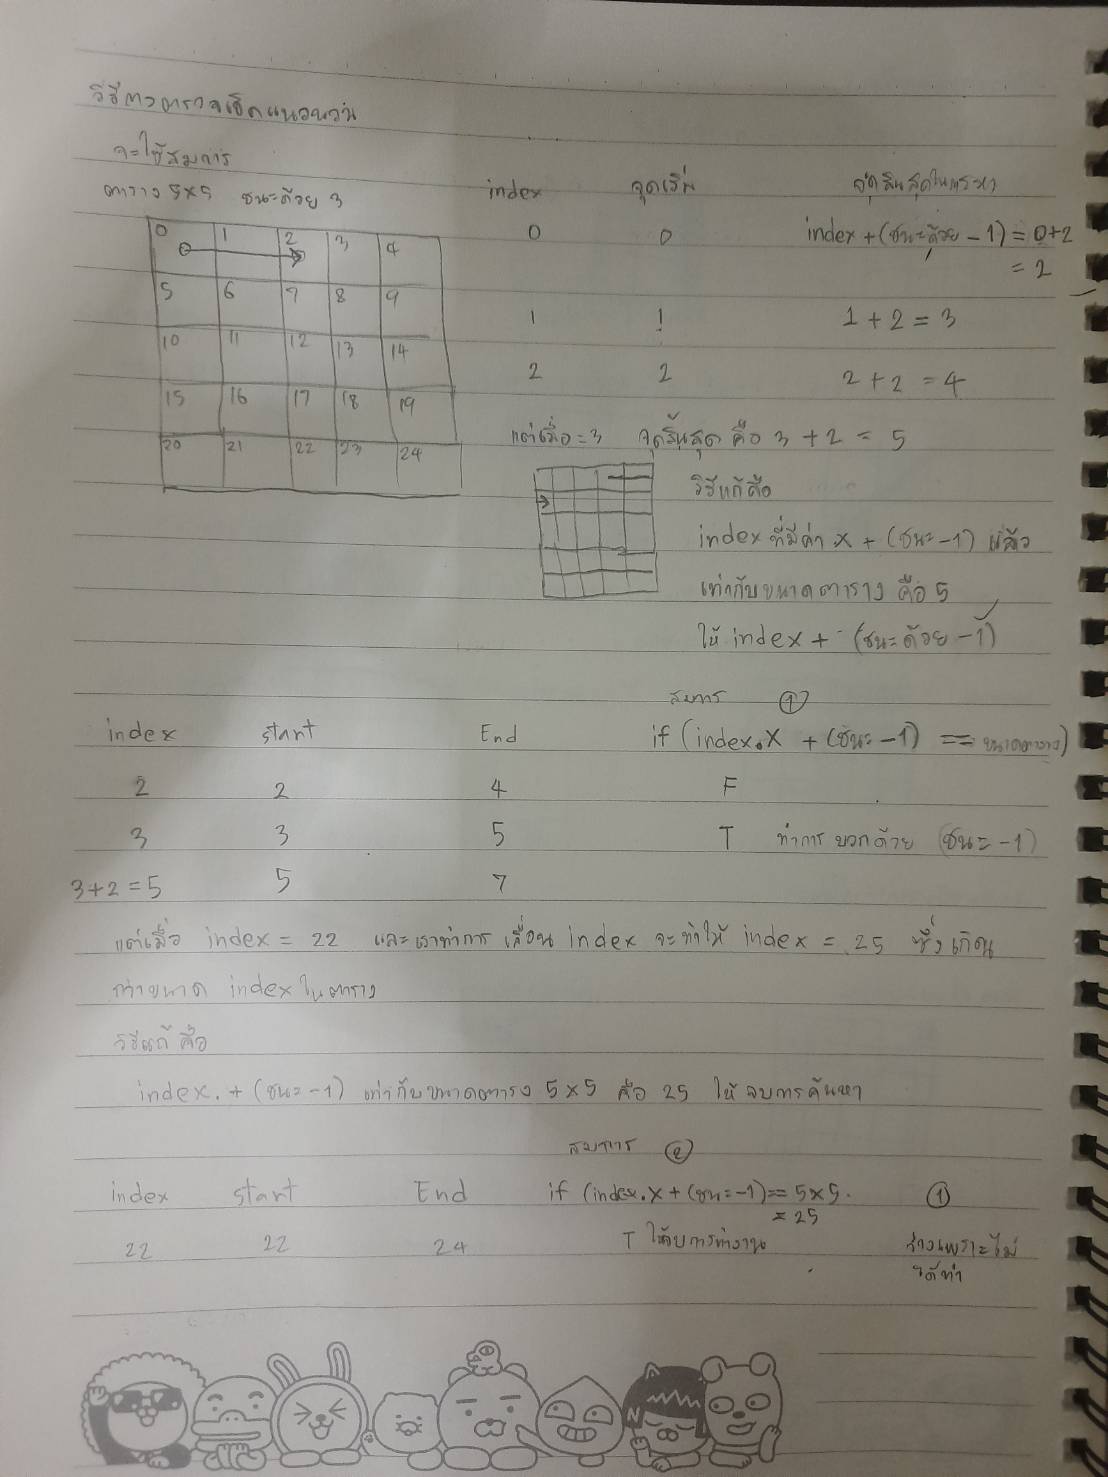 วิธีการตรวจเช็คแนวนอน
จะใช้สมการ
ตาราง 5x5 ชนะด้วย 3
index จุดเริ่ม จุดสิ้นสุดในการหา
0 1 2 3 4
5 6 7 8 9
10 11 12 13 14
15 16 17 18 19
20 21 22 23 24
0 0 index + (ชนะด้วย - 1) = 0+2
= 2
1 1 1 + 2 = 3
2 2 2 + 2 = 4
แต่เมื่อ = 3 จุดสิ้นสุด คือ 3 + 2 = 5
วิธีแก้คือ
index ที่มีค่า x + (ชนะ -1) แล้ว
เท่ากับขนาดตาราง คือ 5
ให้ index + (ชนะด้วย -1)
สมการ ①
index start End if (index.x + (ชนะ -1) == ขนาดตาราง)
2 2 4 F
3 3 5 T ทำการ บวกด้วย (ชนะ -1)
3+2 = 5 5 7
แต่เมื่อ index = 22 และเราทำการ เลื่อน index จะทำให้ index = 25 ซึ่งเกิน
กว่าขนาด index ในตาราง
วิธีแก้ คือ
index. + (ชนะ -1) เท่ากับขนาดตาราง 5 x 5 คือ 25 ให้ จบการค้นหา
สมการ ②
index start End if (index.x + (ชนะ -1) == 5x5. ①
= 25
22 22 24 T ให้จบการทำงาน ว่างเพราะไม่
ได้ทำ